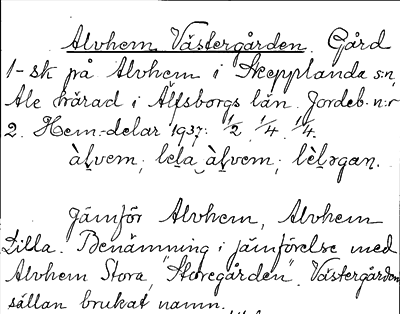 Alvhem Västergården. Gård
1-sk på Alvhem i Skepplanda s:n,
Ale härad i Älfsborgs län. Jordeb. n:r
2. Hem.-delar 1937: 1/2, 1/4, 1/4.
àḷvem, lìḷa àḷvem, lìḷəgan.
Jämför Alvhem, Alvhem
Lilla. Benämning i jämförelse med
Alvhem Stora, "Storegården". Västergården
sällan brukat namn.